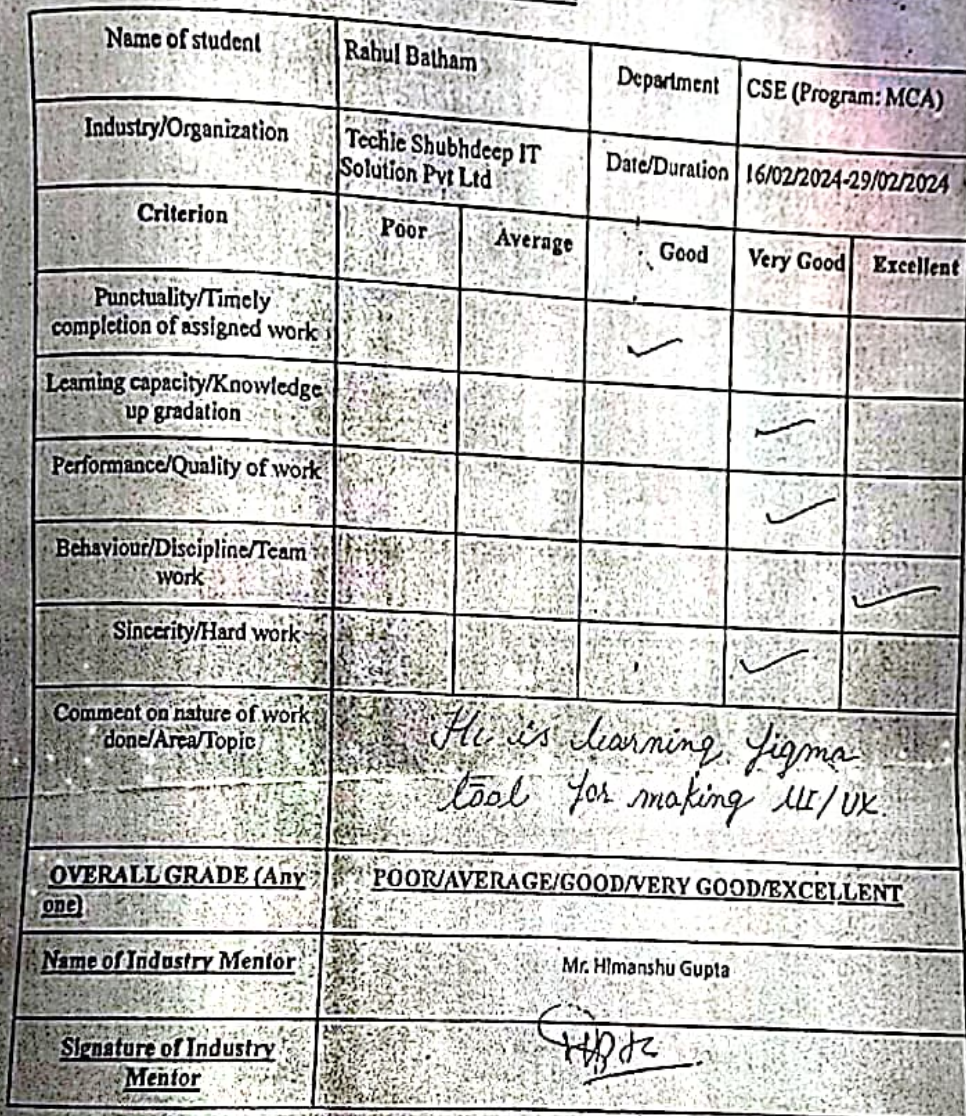 Name of student
Rahul Batham
Department
CSE (Program: MCA)
Industry/Organization
Techie Shubhdeep IT
Solution Pvt Ltd
Date/Duration
16/02/2024-29/02/2024
Criterion
Poor
Average
Good
Very Good
Excellent
Punctuality/Timely
completion of assigned work
Learning capacity/Knowledge
up gradation
Performance/Quality of work
Behaviour/Discipline/Team
work
Sincerity/Hard work
Comment on nature of work
done/Area/Topic
He is learning figma
tool for making UI/UX.
OVERALL GRADE (Any
one)
POOR/AVERAGE/GOOD/VERY GOOD/EXCELLENT
Name of Industry Mentor
Mr. Himanshu Gupta
Signature of Industry
Mentor